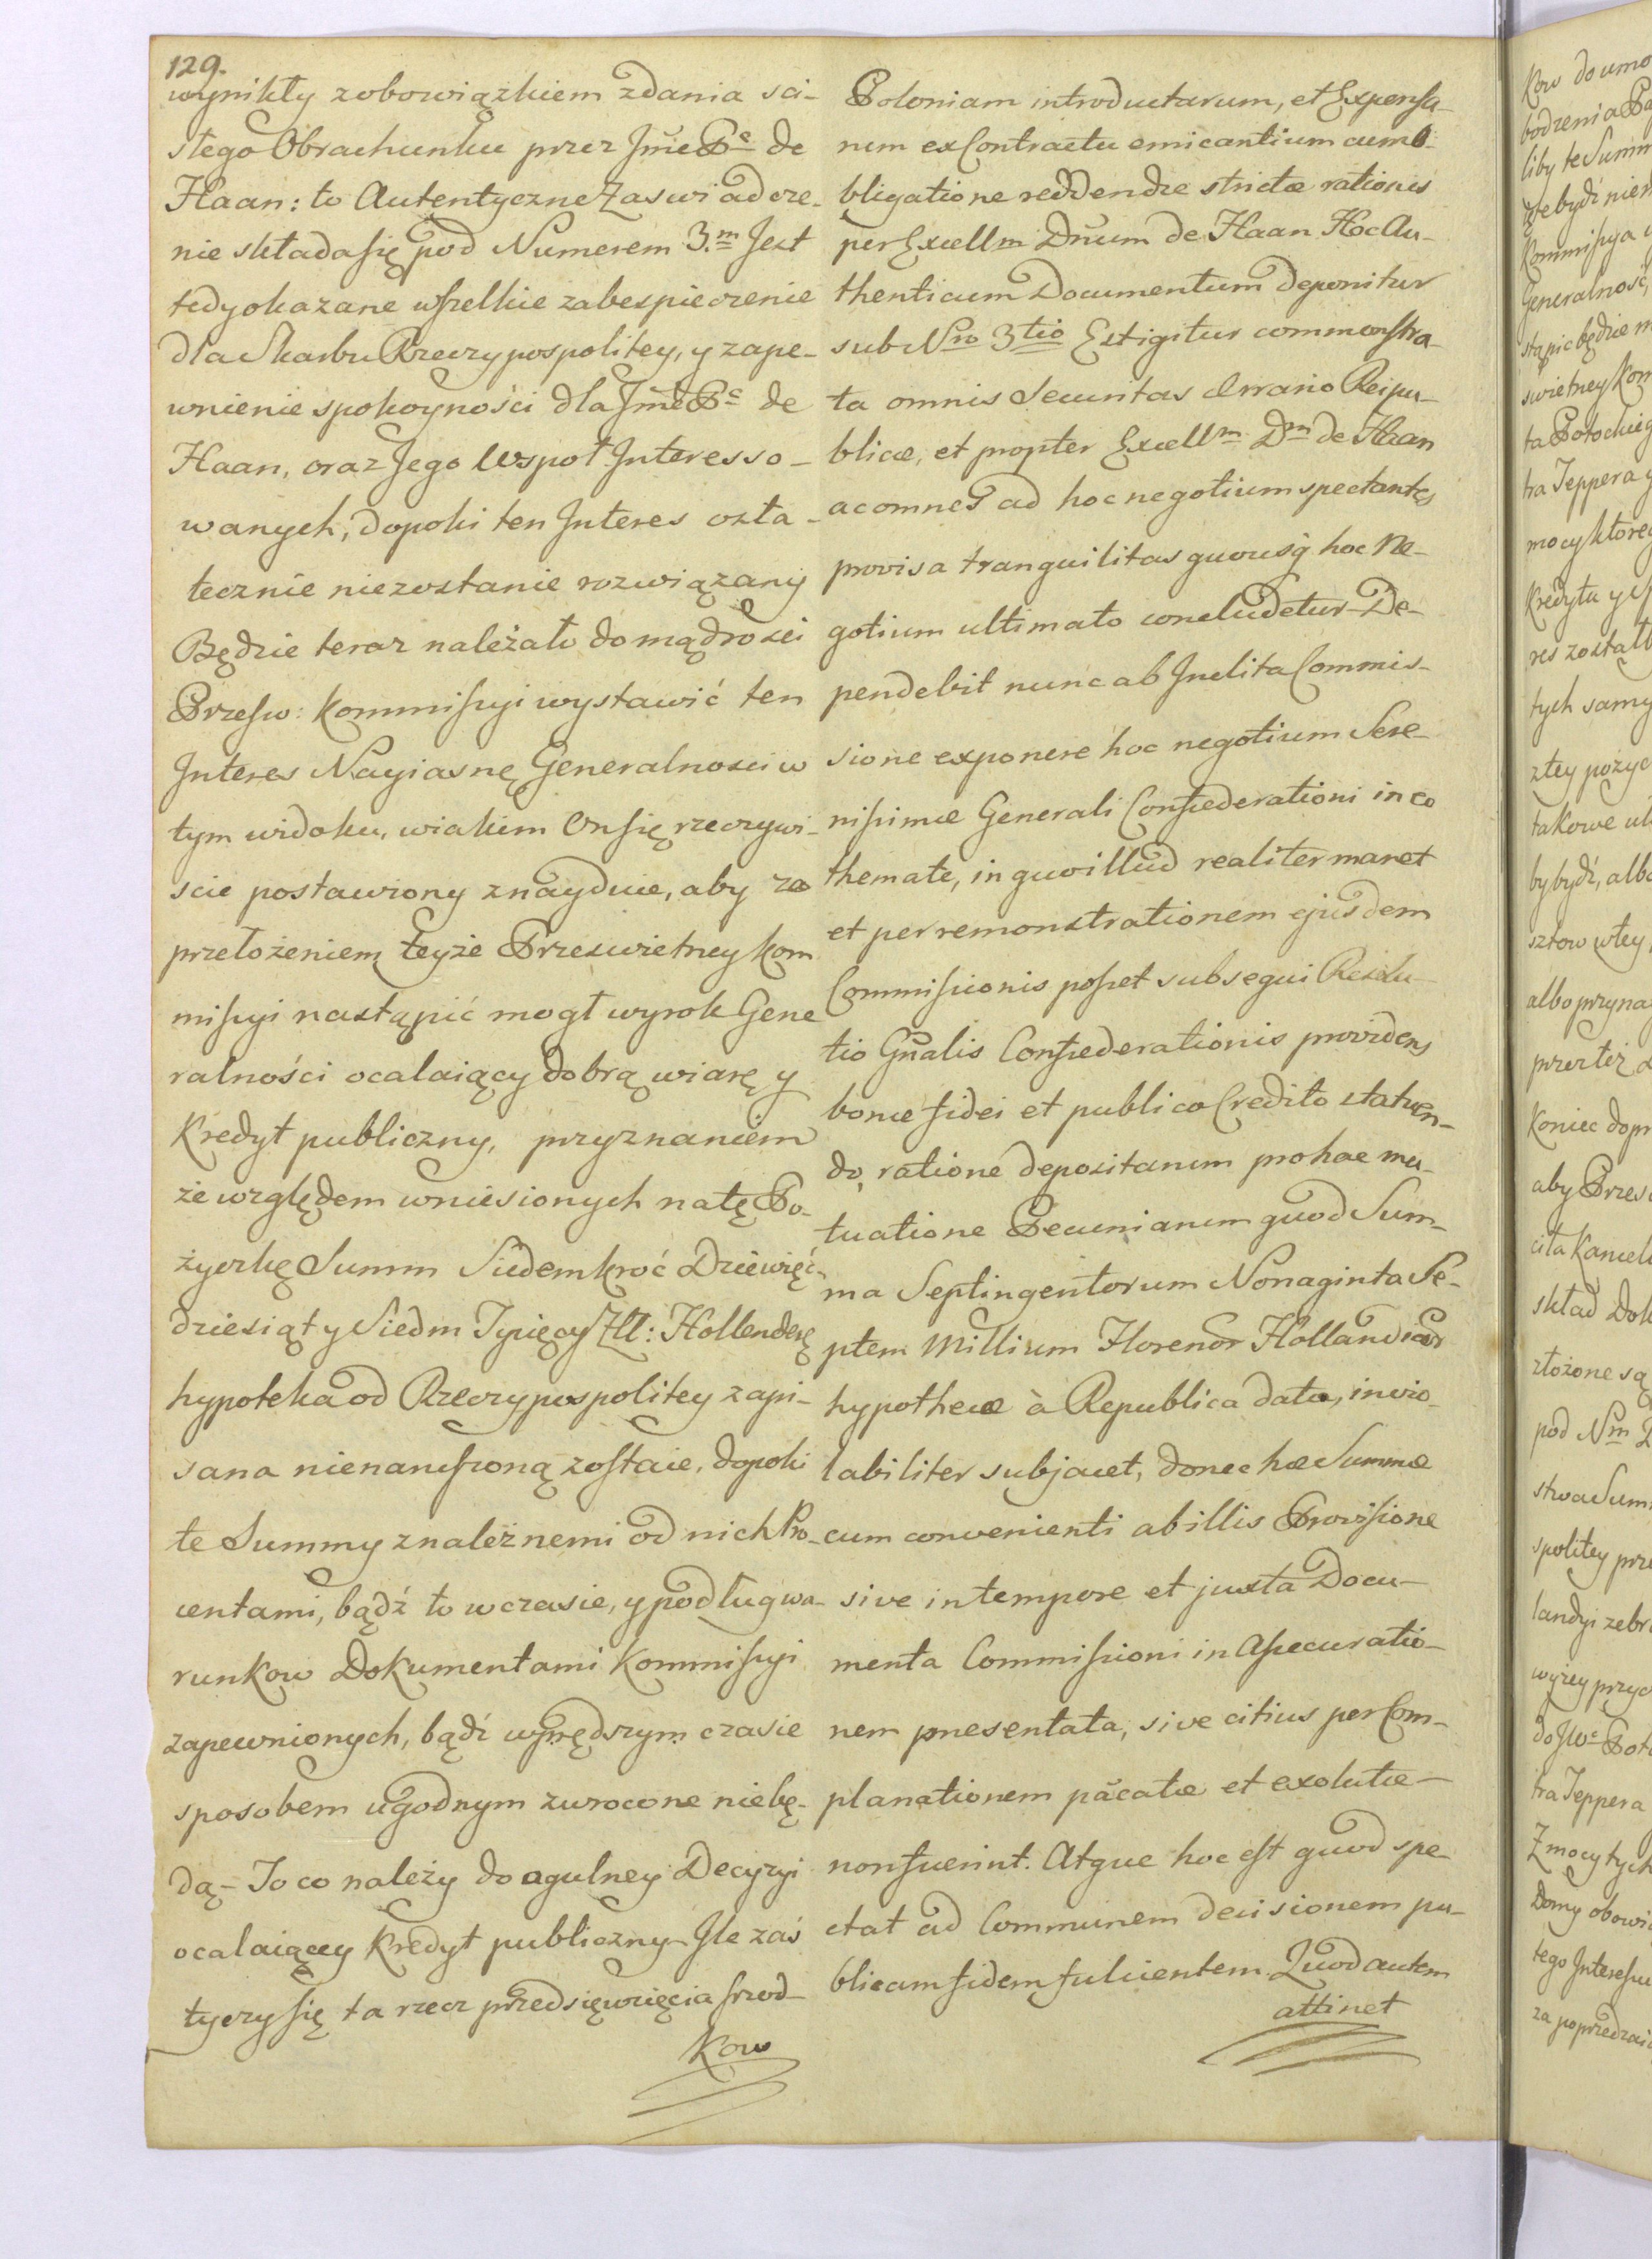 129.
wynikły z obowiązkiem zdania sci-
słego Obrachunku przez Jmć Pa de
Haan: to Autentyczne Zaswiadcze-
nie składa się pod Numerem 3.m Jest
tedy okazane wszelkie zabespieczenie
dla Skarbu Rzeczypospolitey, y zape-
wnienie spokoyności dla Jmć Pa de
Haan, oraz Jego Wspoł Interesso-
wanych, dopoki ten Interes osta-
tecznie niezostanie rozwiązany
Będzie teraz należało do mądrosci
Przesw: Kommissyi wystawić ten
Interes Nayiasnę Generalnosci w
tym widoku, w iakiem On się rzeczywi-
scie postawiony znayduie, aby za
przełożeniem teyże Przeswietney Kom
missyi nastąpić mogł wyrok Gene
ralności ocalaiący dobrą wiarę y
Kredyt publiczny, przyznaniem
że względem wniesionych na tę Po-
życzkę Summ Siedemkroć Dziewięć-
dziesiąt y Siedm Tysięcy Złł: Hollenderę
hypoteka od Rzeczypospolitey zapi-
sana nienaruszoną zostaie, dopoki
te Summy z należnemi od nich Pro-
centami, bądź to w czasie, y podług wa-
runkow Dokumentami Kommissyi
zapewnionych, bądź w prędszym czasie
sposobem ugodnym zwrocone niebę-
dą - To co należy do ogulney Decyzyi
ocalaiącey Kredyt publiczny - Ile zaś
tyczy się ta rzecz przedsięwzięcia szrod-
kow
Poloniam introductarum, et Expensa-
rum ex Contractu emicantium cum O-
bligatione reddendæ strictæ rationis
per Excellm Dnum de Haan Hoc Au-
thenticum Documentum deponitur
sub Nro 3tio Est igitur commonstra-
ta omnis Securitas Ærrario Reipu-
blicæ, et propter Excellm Dm de Haan
ac omnes ad hoc negotium spectantes
provisa tranquilitas quousq hoc Ne-
gotium ultimato concludetur - De-
pendebit nunc ab Inclita Commis-
sione exponere hoc negotium Sere-
nissimæ Generali Confæderationi in eo
themate, in quo illud realiter manet
et per remonstrationem ejusdem
Commissionis posset subsequi Resolu-
tio Gnalis Confæderationis providens
bonæ fidei et publico Credito statuen-
do, ratione depositarum pro hac mu-
tuatione Pecuniarum quod Sum-
ma Septingentorum Nonaginta Se-
ptem Millium Florenor Hollandicor
hypothecæ à Republica datæ, invio-
labiliter subjacet, donec hæ Summæ
cum convenienti ab illis Provisione
sive in tempore et juxta Docu-
menta Commissioni in Assecuratio-
nem præsentata, sive citius per Com-
planationem pacatæ et exolutæ -
non fuerint. Atque hoc est quod spe-
ctat ad Communem decisionem pu-
blicam fidem fulcientem. Quod autem
attinet
Kow do umo
bodzenia Pa
liby te Summ
Kommissya
Generalność,
stąpić będzie m
swietney Kom
ta Potockieg
tra Teppera y
mocy ktore
Kredytu y
res został
tych samy
ztey pożyc
takowe uk
by bydź, albo
sztow w tey
albo przyna
przez też
Koniec dopr
aby Przes
skład Dok
złożone są
pod Nm 2
stwa Sum
spolitey prze
landyi zebr
wyżey przyc
do JWo Poto
tra Teppera
Z mocy tych
Domy obowi
tego Interessu
za poprzedzai